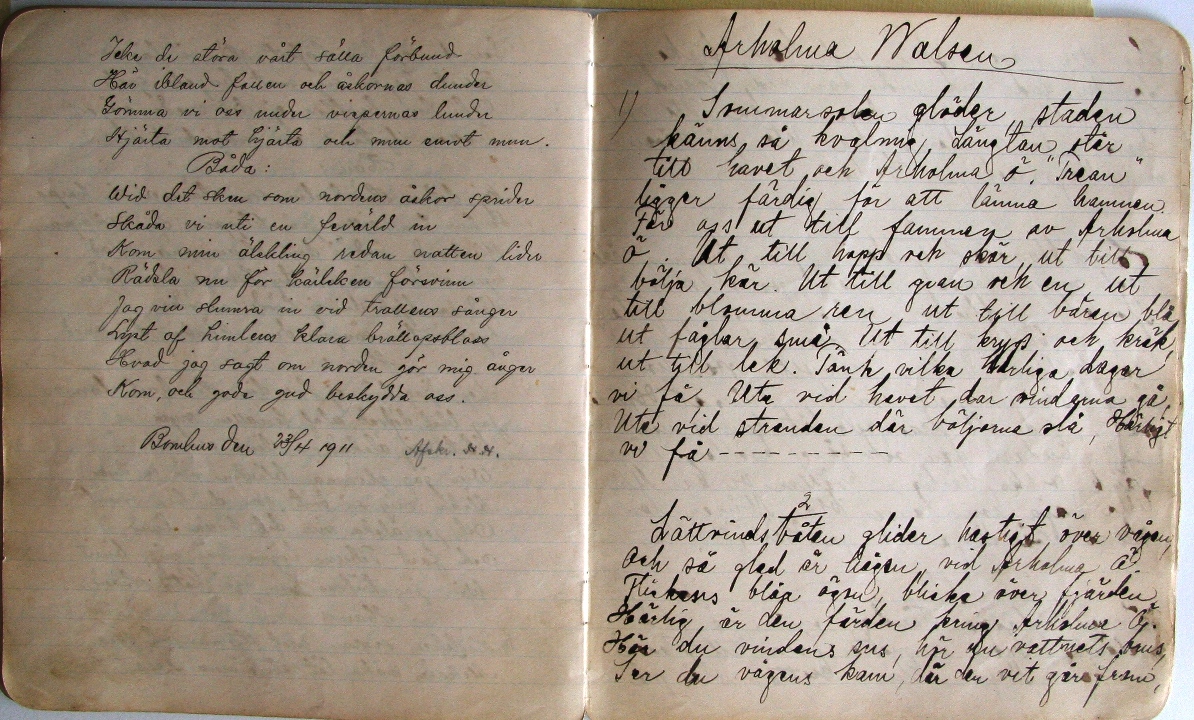 Icke de störa vårt sälla förbund
Här ibland fallen och åskornas dunder
Gömma vi oss under vingarnas lunder
Hjärta mot hjärta och mun emot mun.
Båda:
Wid det sken som nordens åskor sprider
Skåda vi uti en fevärld in
Kom min älskling redan natten lider
Rädsla nu för kärleken försvinn
Jag vill slumra in vid trollens sånger
Lyst af himlens klara bröllopsbloss
Hvad jag sagt om norden gör mig ånger
Kom, och gode gud beskydda oss.
Bomhus den 23/4 1911 Afskr. H.H.
Arholma Walsen
1) Sommarsolen glöder, staden
känns så kvalmig, Längtan står
till havet och Arholma ö. "Trean"
ligger färdig för att lämna hamnen
För oss ut till famnen av Arholma
Ö. Ut till hopp och skär, ut till
bölja kär. Ut till gran och en, ut
till blomma ren, ut till båren blå
ut fåglar små. Ut till kryp och kräk,
ut till lek. Tänk vilka härliga dagar
vi få Ute vid havet dar vindarna gå,
Ute vid stranden där böljorna slå, Härligt
vi få ----------
2
Lättvindsbåten glider hastigt över vågen,
Och så glad är hågen, vid Arholma Ö.
Flickans blåa ögon, blicka över fjärden
Härlig är den färden kring Arholma Ö.
Hör du vindens sus, hör du vattnets brus,
Ser du vågens kam, där den vit går fram,